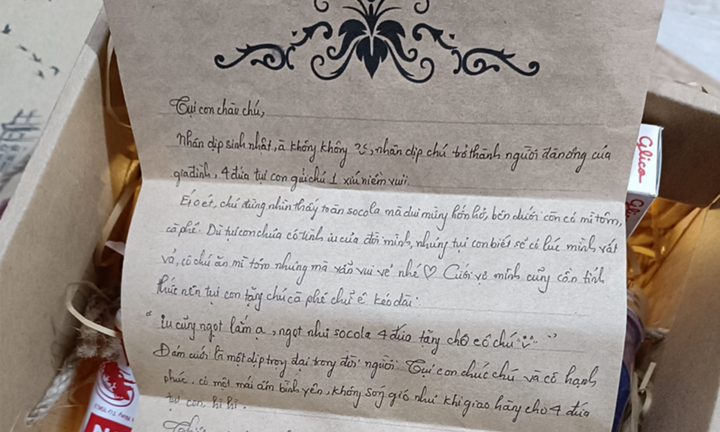 Tụi con chào chú,
Nhân dịp sinh nhật, à không không, nhân dịp chú trở thành người đàn ông của
gia đình, 4 đứa tụi con gửi chú 1 xíu niềm vui.
Ét o ét, chú đừng nhìn thấy toàn socola mà dui mừng hớn hở, bên dưới còn có mì tôm,
cà phê. Dù tụi con chưa có tình iu của đời mình, nhưng tụi con biết sẽ có lúc mình vất
vả, cô chú ăn mì tôm nhưng mà vẫn vui vẻ nhé ♡ Cưới vợ mình cũng cần tỉnh
thức nên tụi con tặng chú cà phê chứ ế kéo dài.
"iu cũng ngọt lắm ạ, ngọt như socola 4 đứa tặng cho cô chú"
Đám cưới là một dịp trọng đại trong đời người. Tụi con chúc chú và cô hạnh
phúc, có một mái ấm bình yên, không sóng gió như khi giao hàng cho 4 đứa
tụi con, hi hi.
Glico